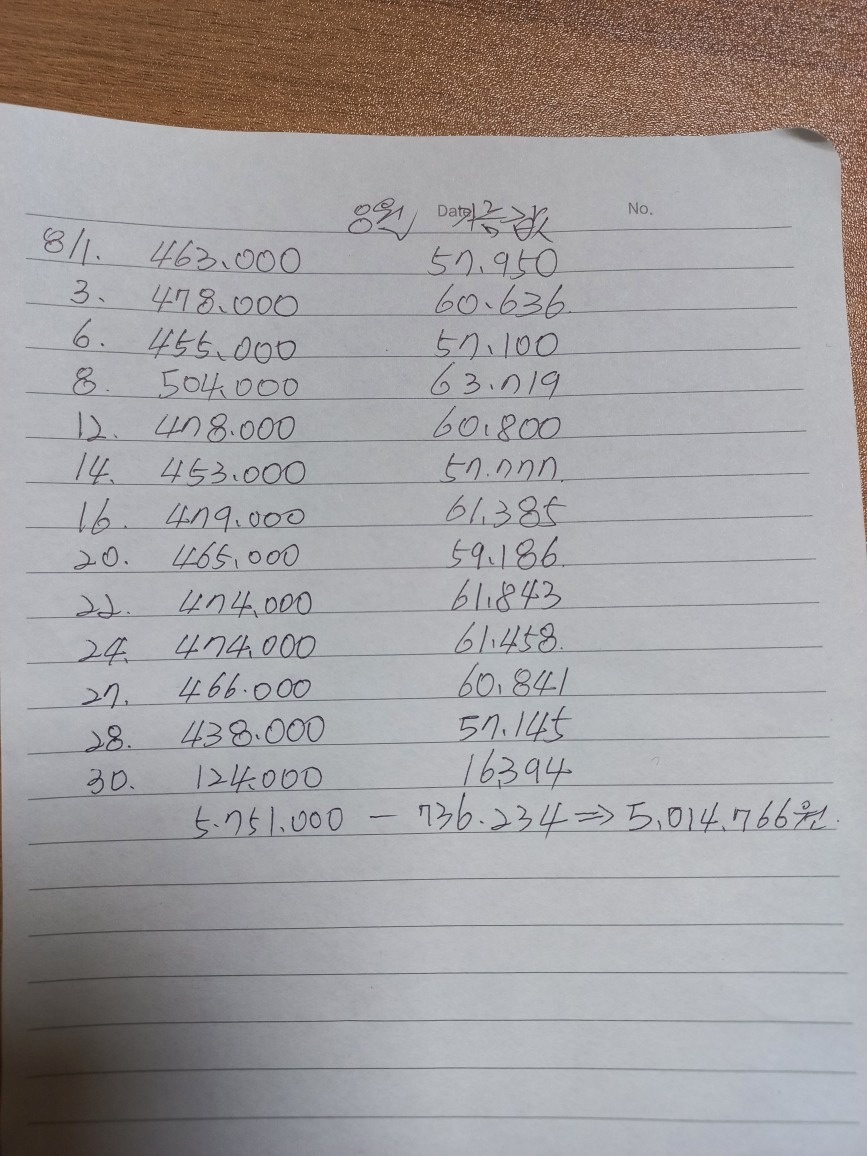 8월 Date 가슴값 No.
8/1. 463.000 57.950
3. 478.000 60.636
6. 455.000 57.100
8. 504.000 63.719
12. 478.000 60.800
14. 453.000 57.777
16. 479.000 61.385
20. 465.000 59.186
22. 474.000 61.843
24. 474.000 61.458
27. 466.000 60.841
28. 438.000 57.145
30. 124.000 16.394
5.751.000 - 736.234 ⇒ 5.014.766원